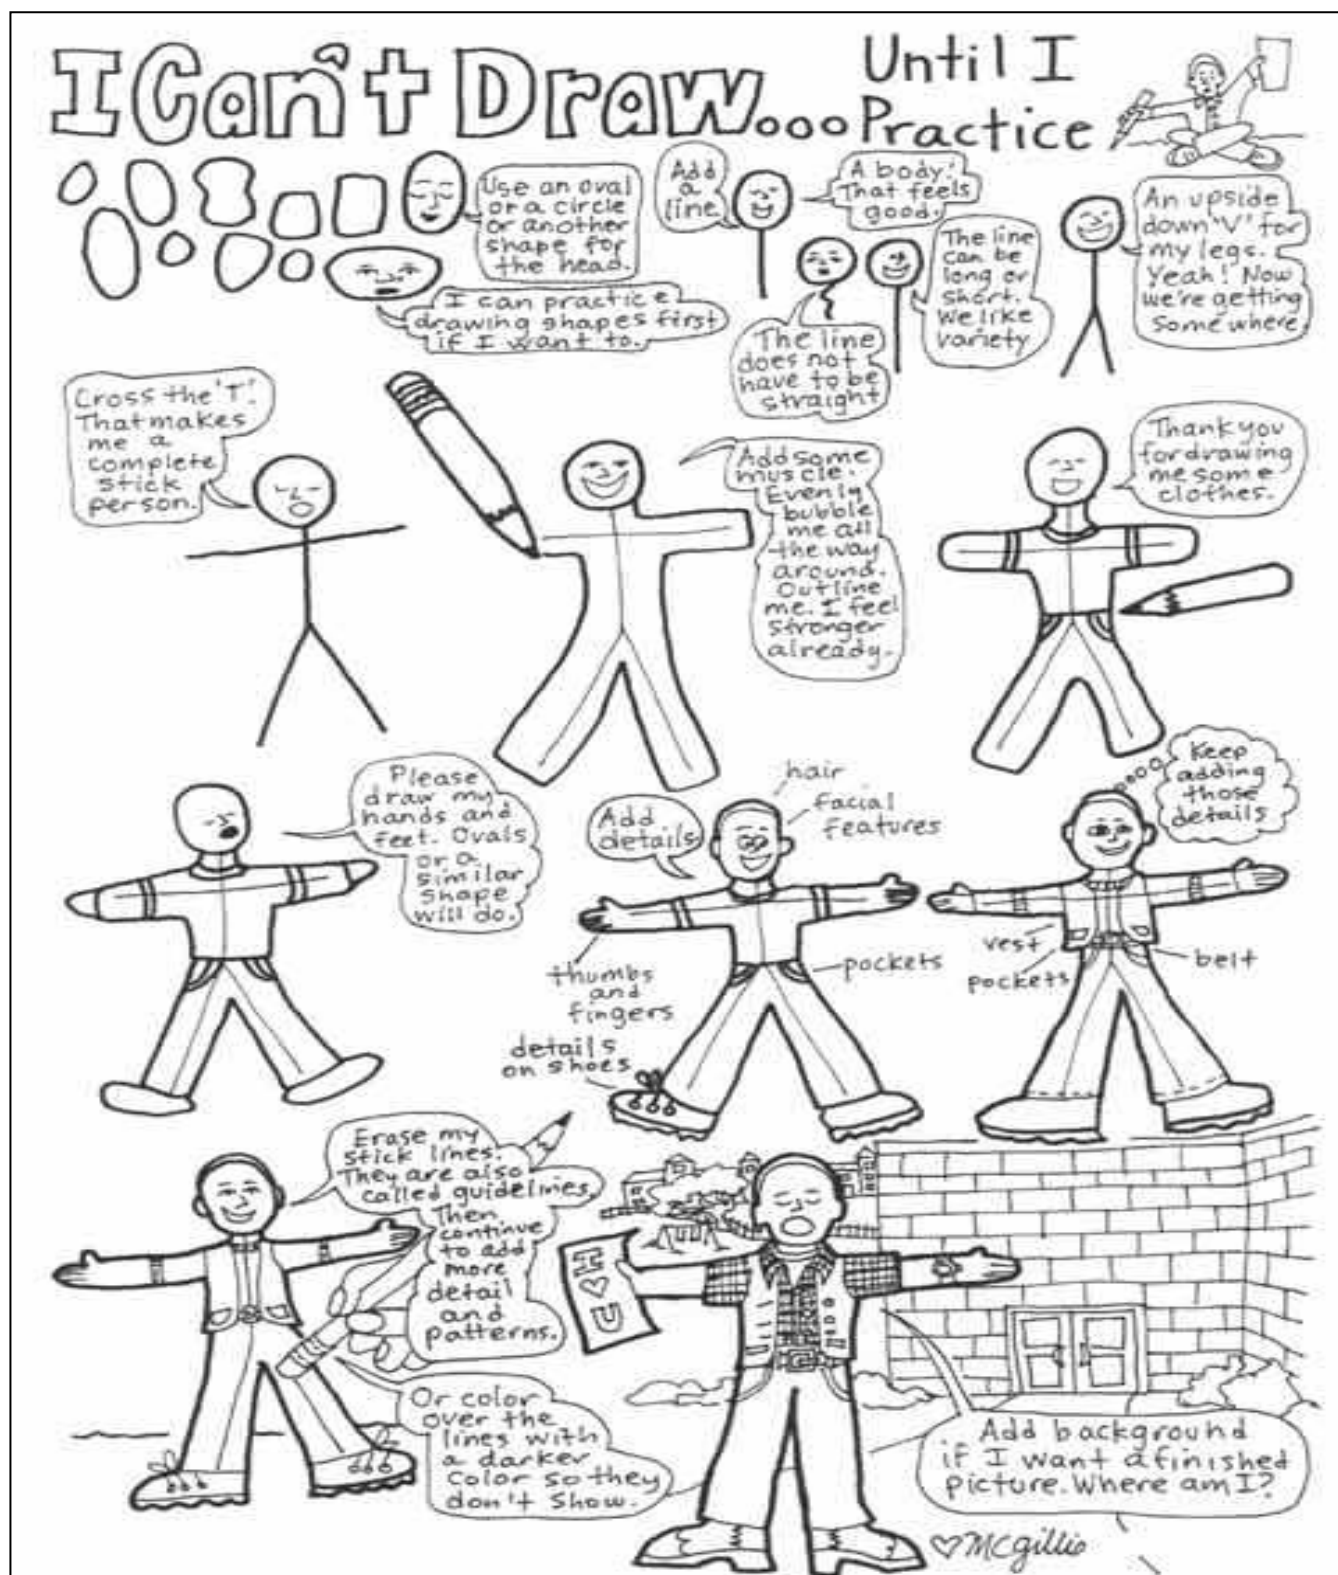 I Can't Draw...
Until I
Practice
Use an oval
or a circle
or another
shape for
the head.
I can practice
drawing shapes first
if I want to.
Add
a
line
A body!
That feels
good.
The line
can be
long or
short.
We like
variety
The line
does not
have to be
straight
An upside
down 'V' for
my legs.
Yeah! Now
we're getting
some where.
Cross the 'T'.
That makes
me a
complete
stick
person.
Add some
muscle.
Evenly
bubble
me all
the way
around.
Outline
me. I feel
stronger
already.
Thank you
for drawing
me some
clothes.
Please
draw my
hands and
feet. Ovals
or a
similar
shape
will do.
Add
details
hair
facial
features
thumbs
and
fingers
pockets
details
on shoes
Keep
adding
those
details
vest
pockets
belt
Erase my
stick lines.
They are also
called guidelines.
Then
continue
to add
more
detail
and
patterns.
Or color
over the
lines with
a darker
color so they
don't show.
I ♡ U
Add background
if I want a finished
picture. Where am I?
♡ McGillie